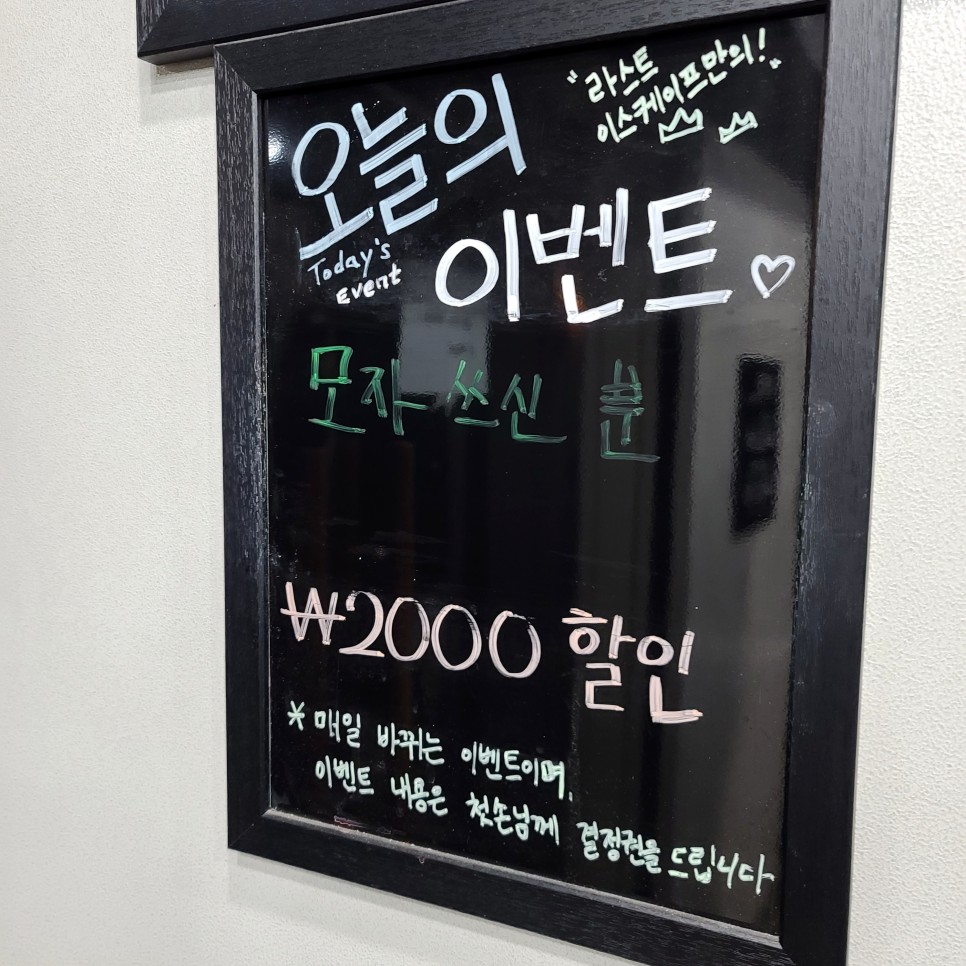 "라스트
이스케이프만의!"
오늘의
Today's
Event
이벤트
모자 쓰신 분
₩2000 할인
* 매일 바뀌는 이벤트이며,
이벤트 내용은 첫손님께 결정권을 드립니다